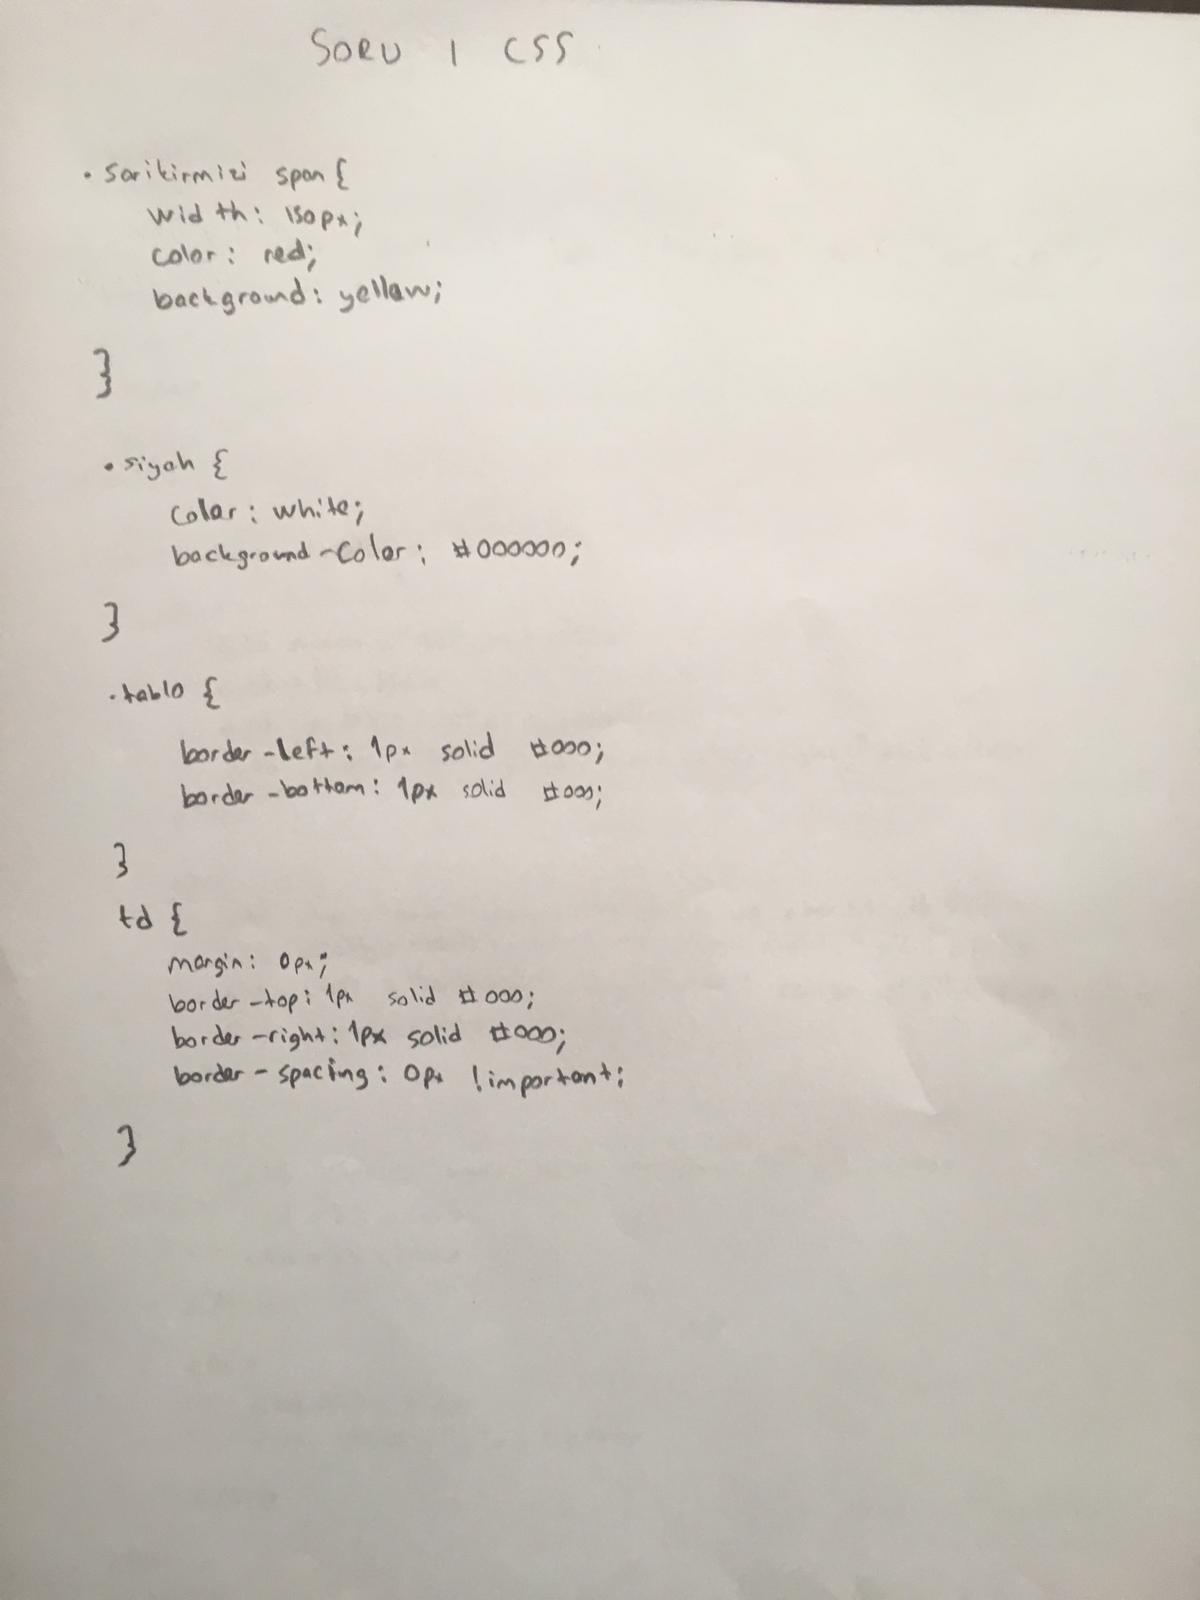 SORU 1 CSS
.sarikirmizi span {
width: 150px;
color: red;
background: yellow;
}
.siyah {
color: white;
background-color: #000000;
}
.tablo {
border-left: 1px solid #000;
border-bottom: 1px solid #000;
}
td {
margin: 0px;
border-top: 1px solid #000;
border-right: 1px solid #000;
border-spacing: 0px !important;
}